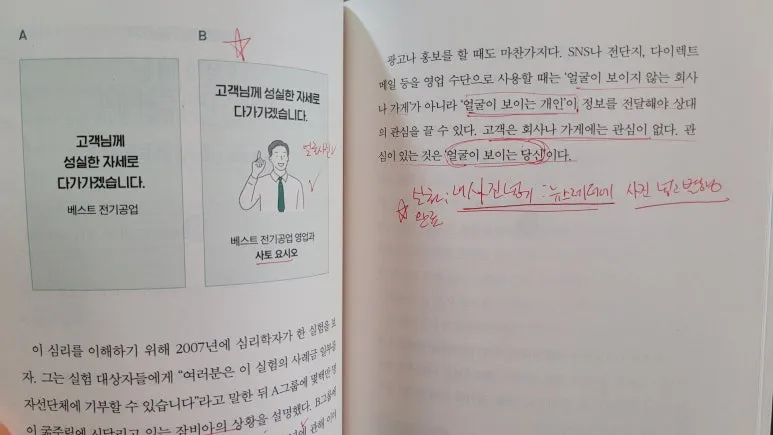 A
고객님께
성실한 자세로
다가가겠습니다.
베스트 전기공업
B
고객님께 성실한 자세로
다가가겠습니다.
얼굴사진
베스트 전기공업 영업과
사토 요시오
이 심리를 이해하기 위해 2007년에 심리학자가 한 실험을 보
자. 그는 실험 대상자들에게 “여러분은 이 실험의 사례금 일부를
자선단체에 기부할 수 있습니다”라고 말한 뒤 A그룹에 몇백만 명
이 굶주림에 시달리고 있는 잠비아의 상황을 설명했다. B그룹에
관해 이야
광고나 홍보를 할 때도 마찬가지다. SNS나 전단지, 다이렉트
메일 등을 영업 수단으로 사용할 때는 ‘얼굴이 보이지 않는 회사
나 가게’가 아니라 ‘얼굴이 보이는 개인’이 정보를 전달해야 상대
의 관심을 끌 수 있다. 고객은 회사나 가게에는 관심이 없다. 관
심이 있는 것은 ‘얼굴이 보이는 당신’이다.
내 사진 넣기 : 뉴스레터에 사진 넣으로 변형
완료